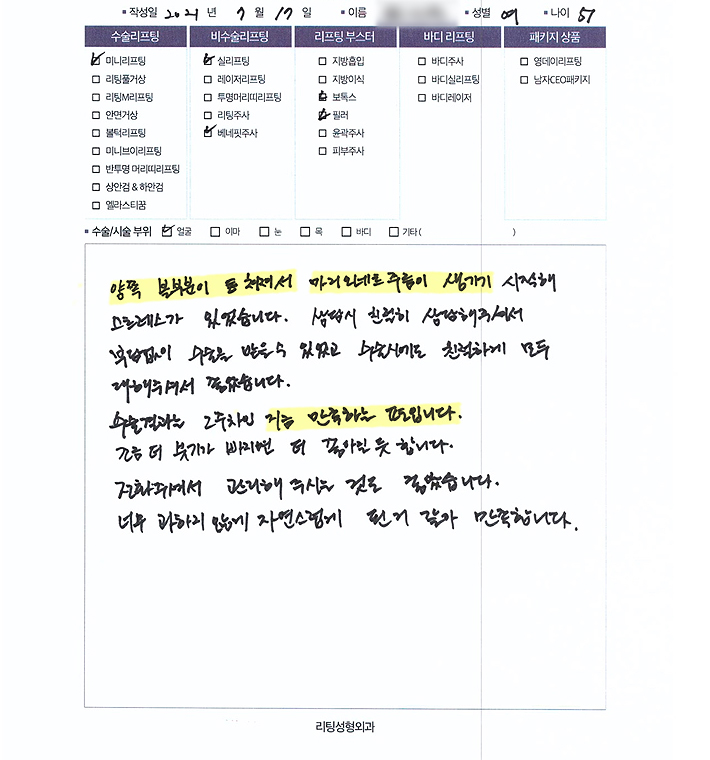 작성일 2021 년 7 월 17 일 이름 성별 여 나이 57
수술리프팅 비수술리프팅 리프팅 부스터 바디 리프팅 패키지 상품
미니리프팅 실리프팅 지방흡입 바디주사 영데이리프팅
리팅풀거상 레이저리프팅 지방이식 바디실리프팅 남자CEO패키지
리팅M리프팅 투명머리띠리프팅 보톡스 바디레이저
안면거상 리팅주사 필러
볼턱리프팅 베네핏주사 윤곽주사
미니브이리프팅 피부주사
반투명 머리띠리프팅
상안검 & 하안검
엘라스티꿈
수술/시술 부위 얼굴 이마 눈 목 바디 기타( )
양쪽 볼부분이 처져서 마리오네트주름이 생기기 시작해
스트레스가 있었습니다. 상담시 친절히 상담해주셔서
부담없이 수술을 받을수 있었고 수술시에도 친절하게 모두
대해주셔서 좋았습니다.
수술결과는 2주차인 지금 만족하는 편입니다.
조금 더 붓기가 빠지면 더 좋아질 듯 합니다.
전화주셔서 관리해 주시는 것도 좋았습니다.
너무 과하지 않게 자연스럽게 된거 같아 만족합니다.
리팅성형외과